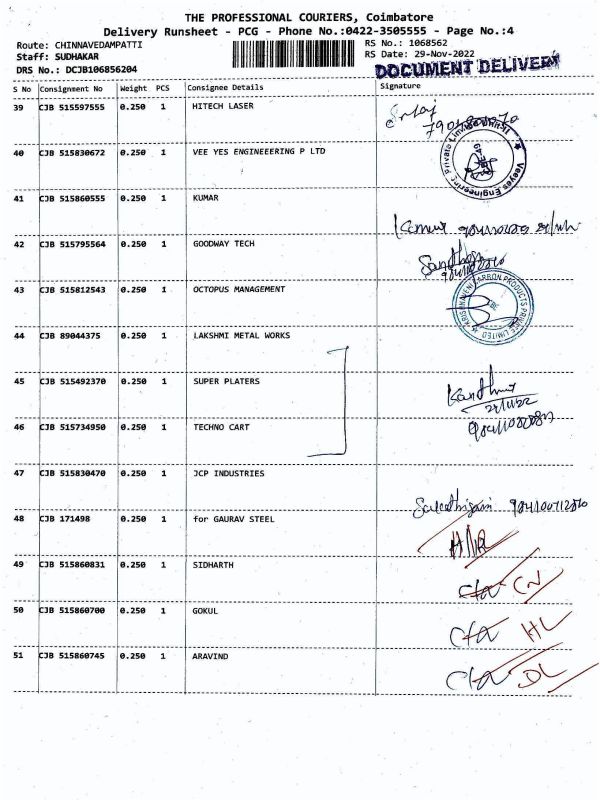 THE PROFESSIONAL COURIERS, Coimbatore
Delivery Runsheet - PCG - Phone No.:0422-3505555 - Page No.:4
Route: CHINNAVEDAMPATTI RS No.: 1068562
Staff: SUDHAKAR RS Date: 29-Nov-2022
DRS No.: DCJB106856204 DOCUMENT DELIVERY
S No Consignment No Weight PCS Consignee Details Signature
39 CJB 515597555 0.250 1 HITECH LASER
40 CJB 515830672 0.250 1 VEE YES ENGINEEERING P LTD
Veeyes Engineering Private Limited
41 CJB 515860555 0.250 1 KUMAR
42 CJB 515795564 0.250 1 GOODWAY TECH
43 CJB 515812543 0.250 1 OCTOPUS MANAGEMENT
CARBON PRODUCTS PRIVATE LIMITED
44 CJB 89044375 0.250 1 LAKSHMI METAL WORKS
45 CJB 515492370 0.250 1 SUPER PLATERS
46 CJB 515734950 0.250 1 TECHNO CART
47 CJB 515830470 0.250 1 JCP INDUSTRIES
48 CJB 171498 0.250 1 for GAURAV STEEL
49 CJB 515860831 0.250 1 SIDHARTH
50 CJB 515860700 0.250 1 GOKUL
HL
51 CJB 515860745 0.250 1 ARAVIND
DL